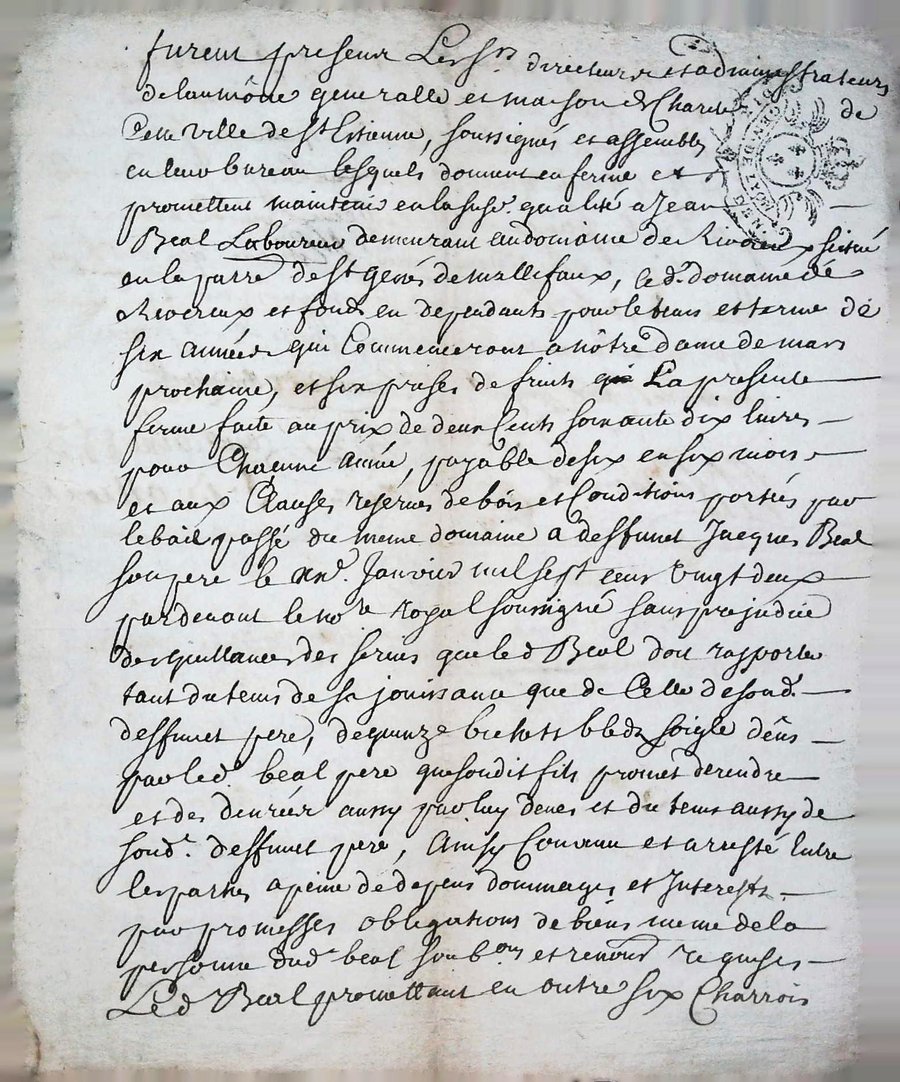 furent presents Les srs directeurs et administrateurs
de laumône generalle et maison de Charité de
Cette ville de St Estienne, soussignés et assemblés
en leur bureau lesquels donnent en ferme et
promettent maintenir en la susd. qualité a Jean
Beal Laboureur demeurant au domaine de Rivoreux scitué
en la parre de St Genés de mallifaux, Ce d. domaine de
Rivoreux et fonds en dependants pour le tems et terme de
six années qui Commenceront a nôtre dame de mars
prochaine, et six prises de fruits La presente
ferme faite au prix de deux Cents soixante dix livres
pour Chacune année, payable de six en six mois
et aux Clauses reserves de bois et Conditions portées par
le bail passé du meme domaine a deffunct Jacques Beal
son pere le Janvier mil sept cent vingt deux
par devant le nore Royal soussigné sans prejudice
des quittances des servis que led Beal doit rapporter
tant du tems de sa jouissance que de Celle de sond.
deffunct pere, de quinze bichets bled soigle deus
par led. beal pere que sondit fils promet de rendre
et des denrées aussy par luy deues et du tems aussy de
sond. deffunct pere, Ainsy Convenu et arresté Entre
les parties a peine de depens dommages et Interests
par promesses obligations de biens meme de la
personne dud. beal soub.ons et renons requises
Led Beal promettant en outre six Charrois